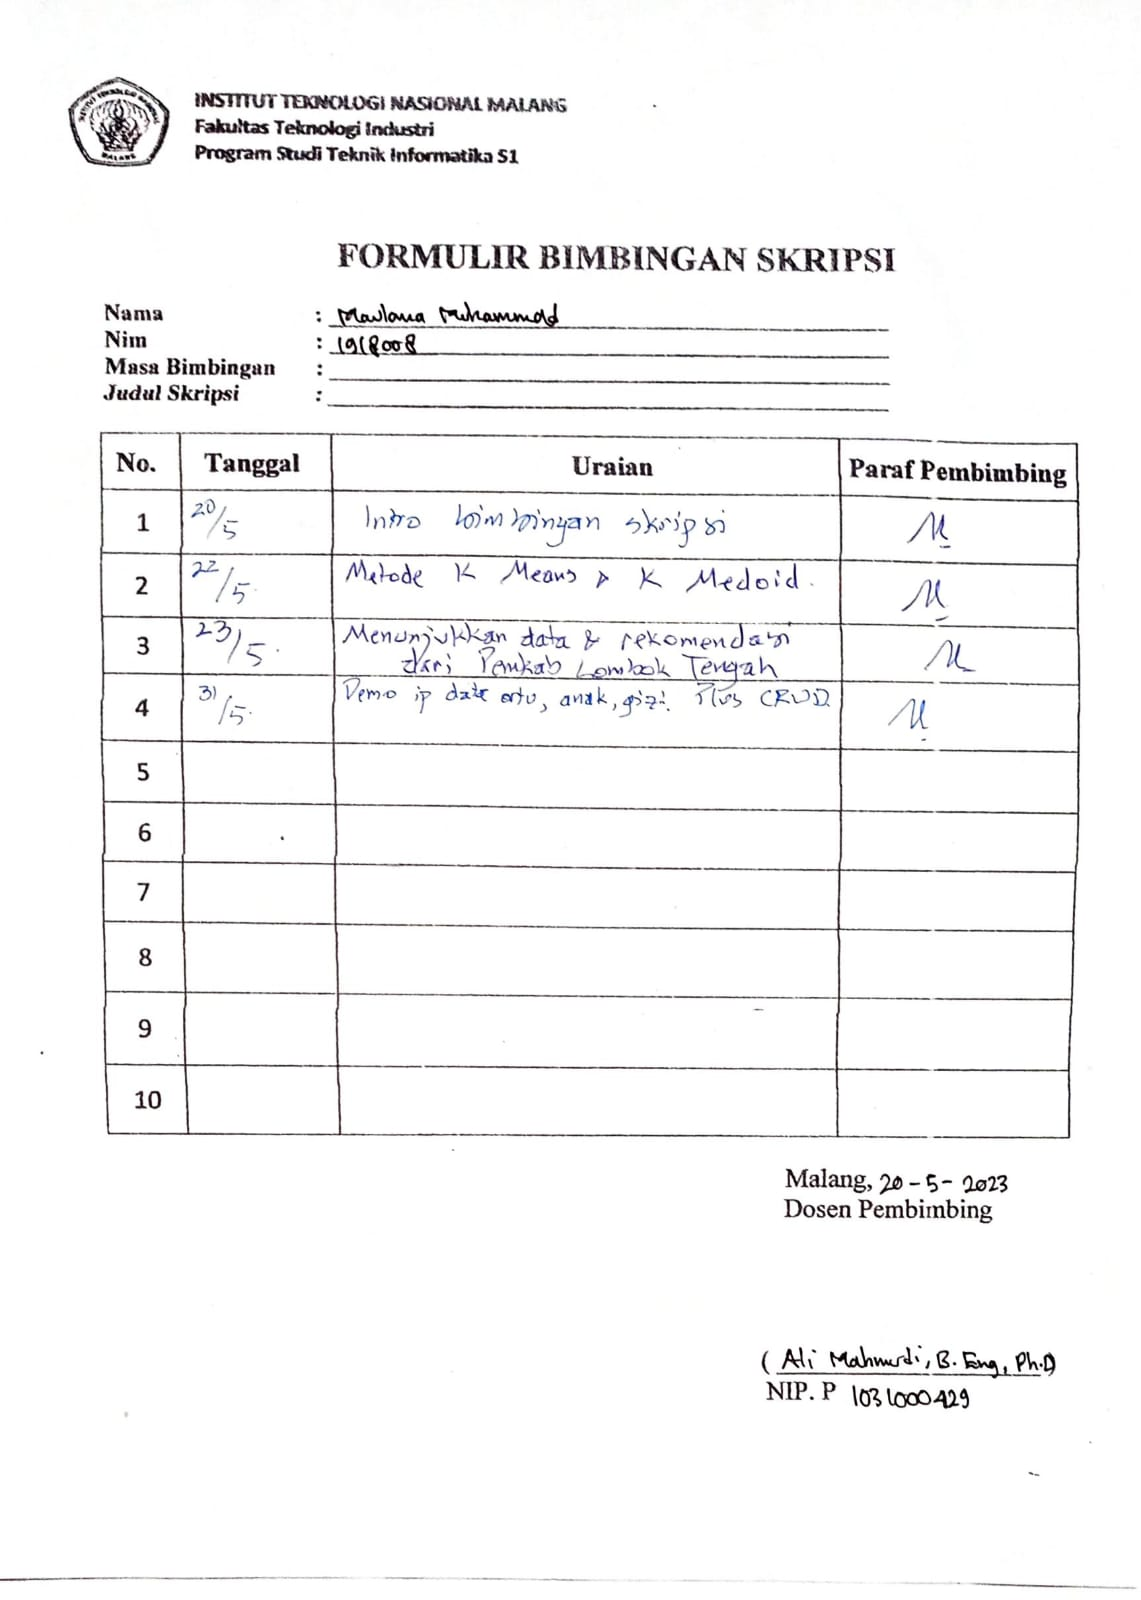 INSTITUT TEKNOLOGI NASIONAL MALANG
Fakultas Teknologi Industri
Program Studi Teknik Informatika S1
FORMULIR BIMBINGAN SKRIPSI
Nama : Maulana Muhammad
Nim : 1918008
Masa Bimbingan :
Judul Skripsi :
No. Tanggal Uraian Paraf Pembimbing
1 20/5 Intro bimbingan skripsi
2 22/5. Metode K Means & K Medoid.
3 23/5. Menunjukkan data & rekomendasi
dari Pemkab Lombok Tengah
4 31/5. Demo ip data ortu, anak, gizi. Plus CRUD.
5
6
7
8
9
10
Malang, 20-5-2023
Dosen Pembimbing
(Ali Mahmudi, B.Eng, Ph.D)
NIP. P 1031000429